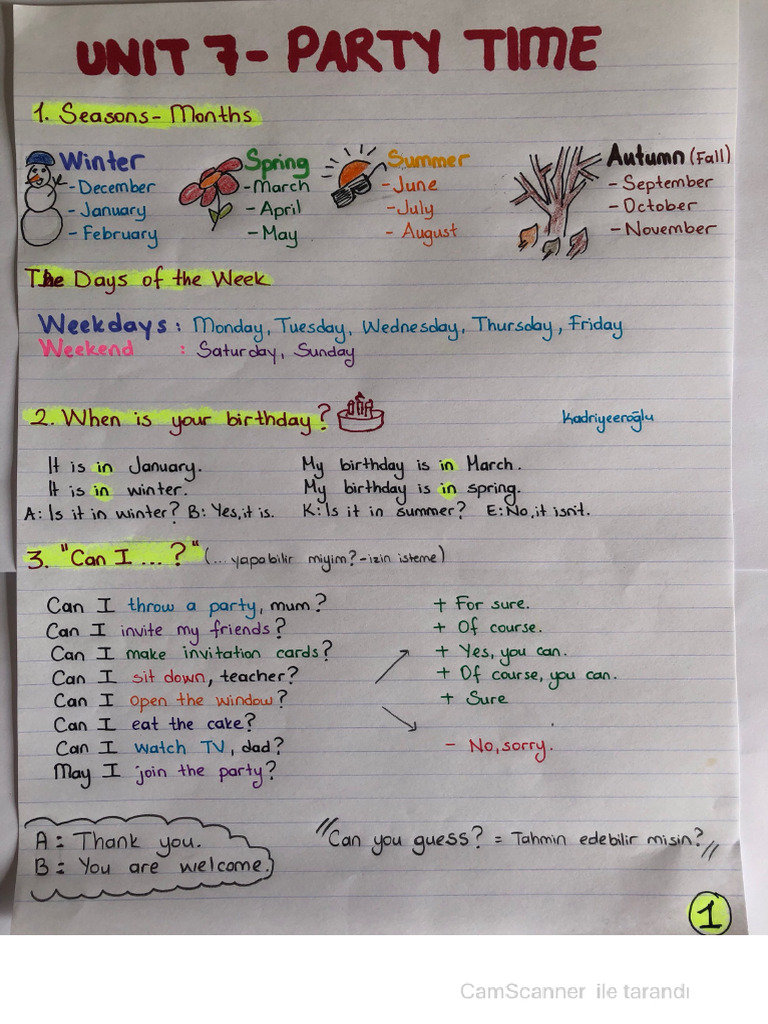 UNIT 7- PARTY TIME
1. Seasons- Months
Winter
- December
- January
- February
Spring
- March
- April
- May
Summer
- June
- July
- August
Autumn (Fall)
- September
- October
- November
The Days of the Week
Weekdays : Monday, Tuesday, Wednesday, Thursday, Friday
Weekend : Saturday, Sunday
2. When is your birthday?
kadriyeeroğlu
It is in January. My birthday is in March.
It is in winter. My birthday is in spring.
A: Is it in winter? B: Yes, it is. K: Is it in summer? E: No, it isn't.
3. "Can I ... ?" (... yapabilir miyim? - izin isteme)
Can I throw a party, mum?
Can I invite my friends?
Can I make invitation cards?
Can I sit down, teacher?
Can I open the window?
Can I eat the cake?
Can I watch TV, dad?
May I join the party?
+ For sure.
+ Of course.
+ Yes, you can.
+ Of course, you can.
+ Sure
- No, sorry.
A: Thank you.
B: You are welcome.
"Can you guess? = Tahmin edebilir misin?"
1
CamScanner ile tarandı